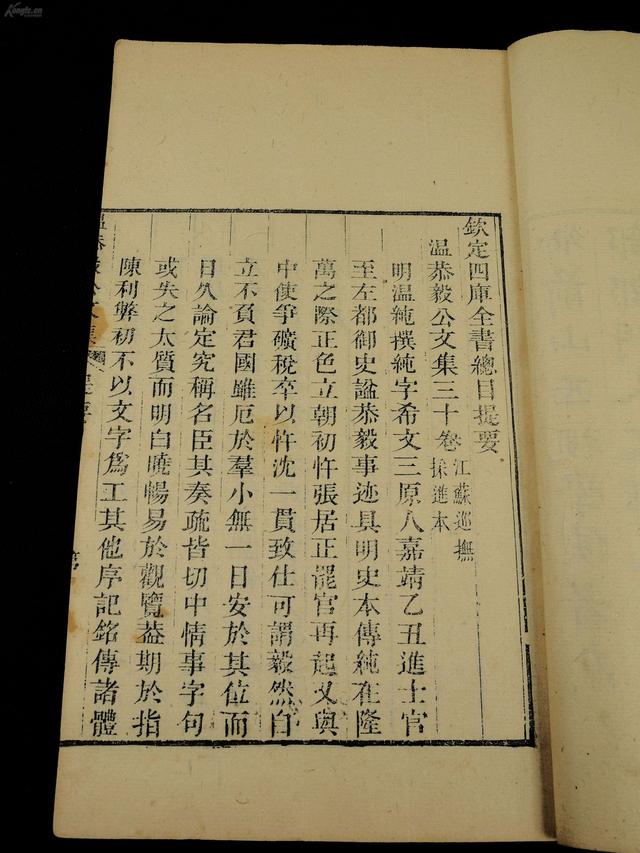 欽定四庫全書總目提要
温恭毅公文集三十卷 江蘇巡撫
採進本
明温純撰純字希文三原人嘉靖乙丑進士官
至左都御史諡恭毅事迹具明史本傳純在隆
萬之際正色立朝初忤張居正罷官再起又與
中使爭礦稅卒以忤沈一貫致仕可謂毅然自
立不負君國雖厄於羣小無一日安於其位而
日久論定究稱名臣其奏疏皆切中情事字句
或失之太質而明白曉暢易於觀覽葢期於指
陳利弊初不以文字爲工其他序記銘傳諸體
Kongfz.cn